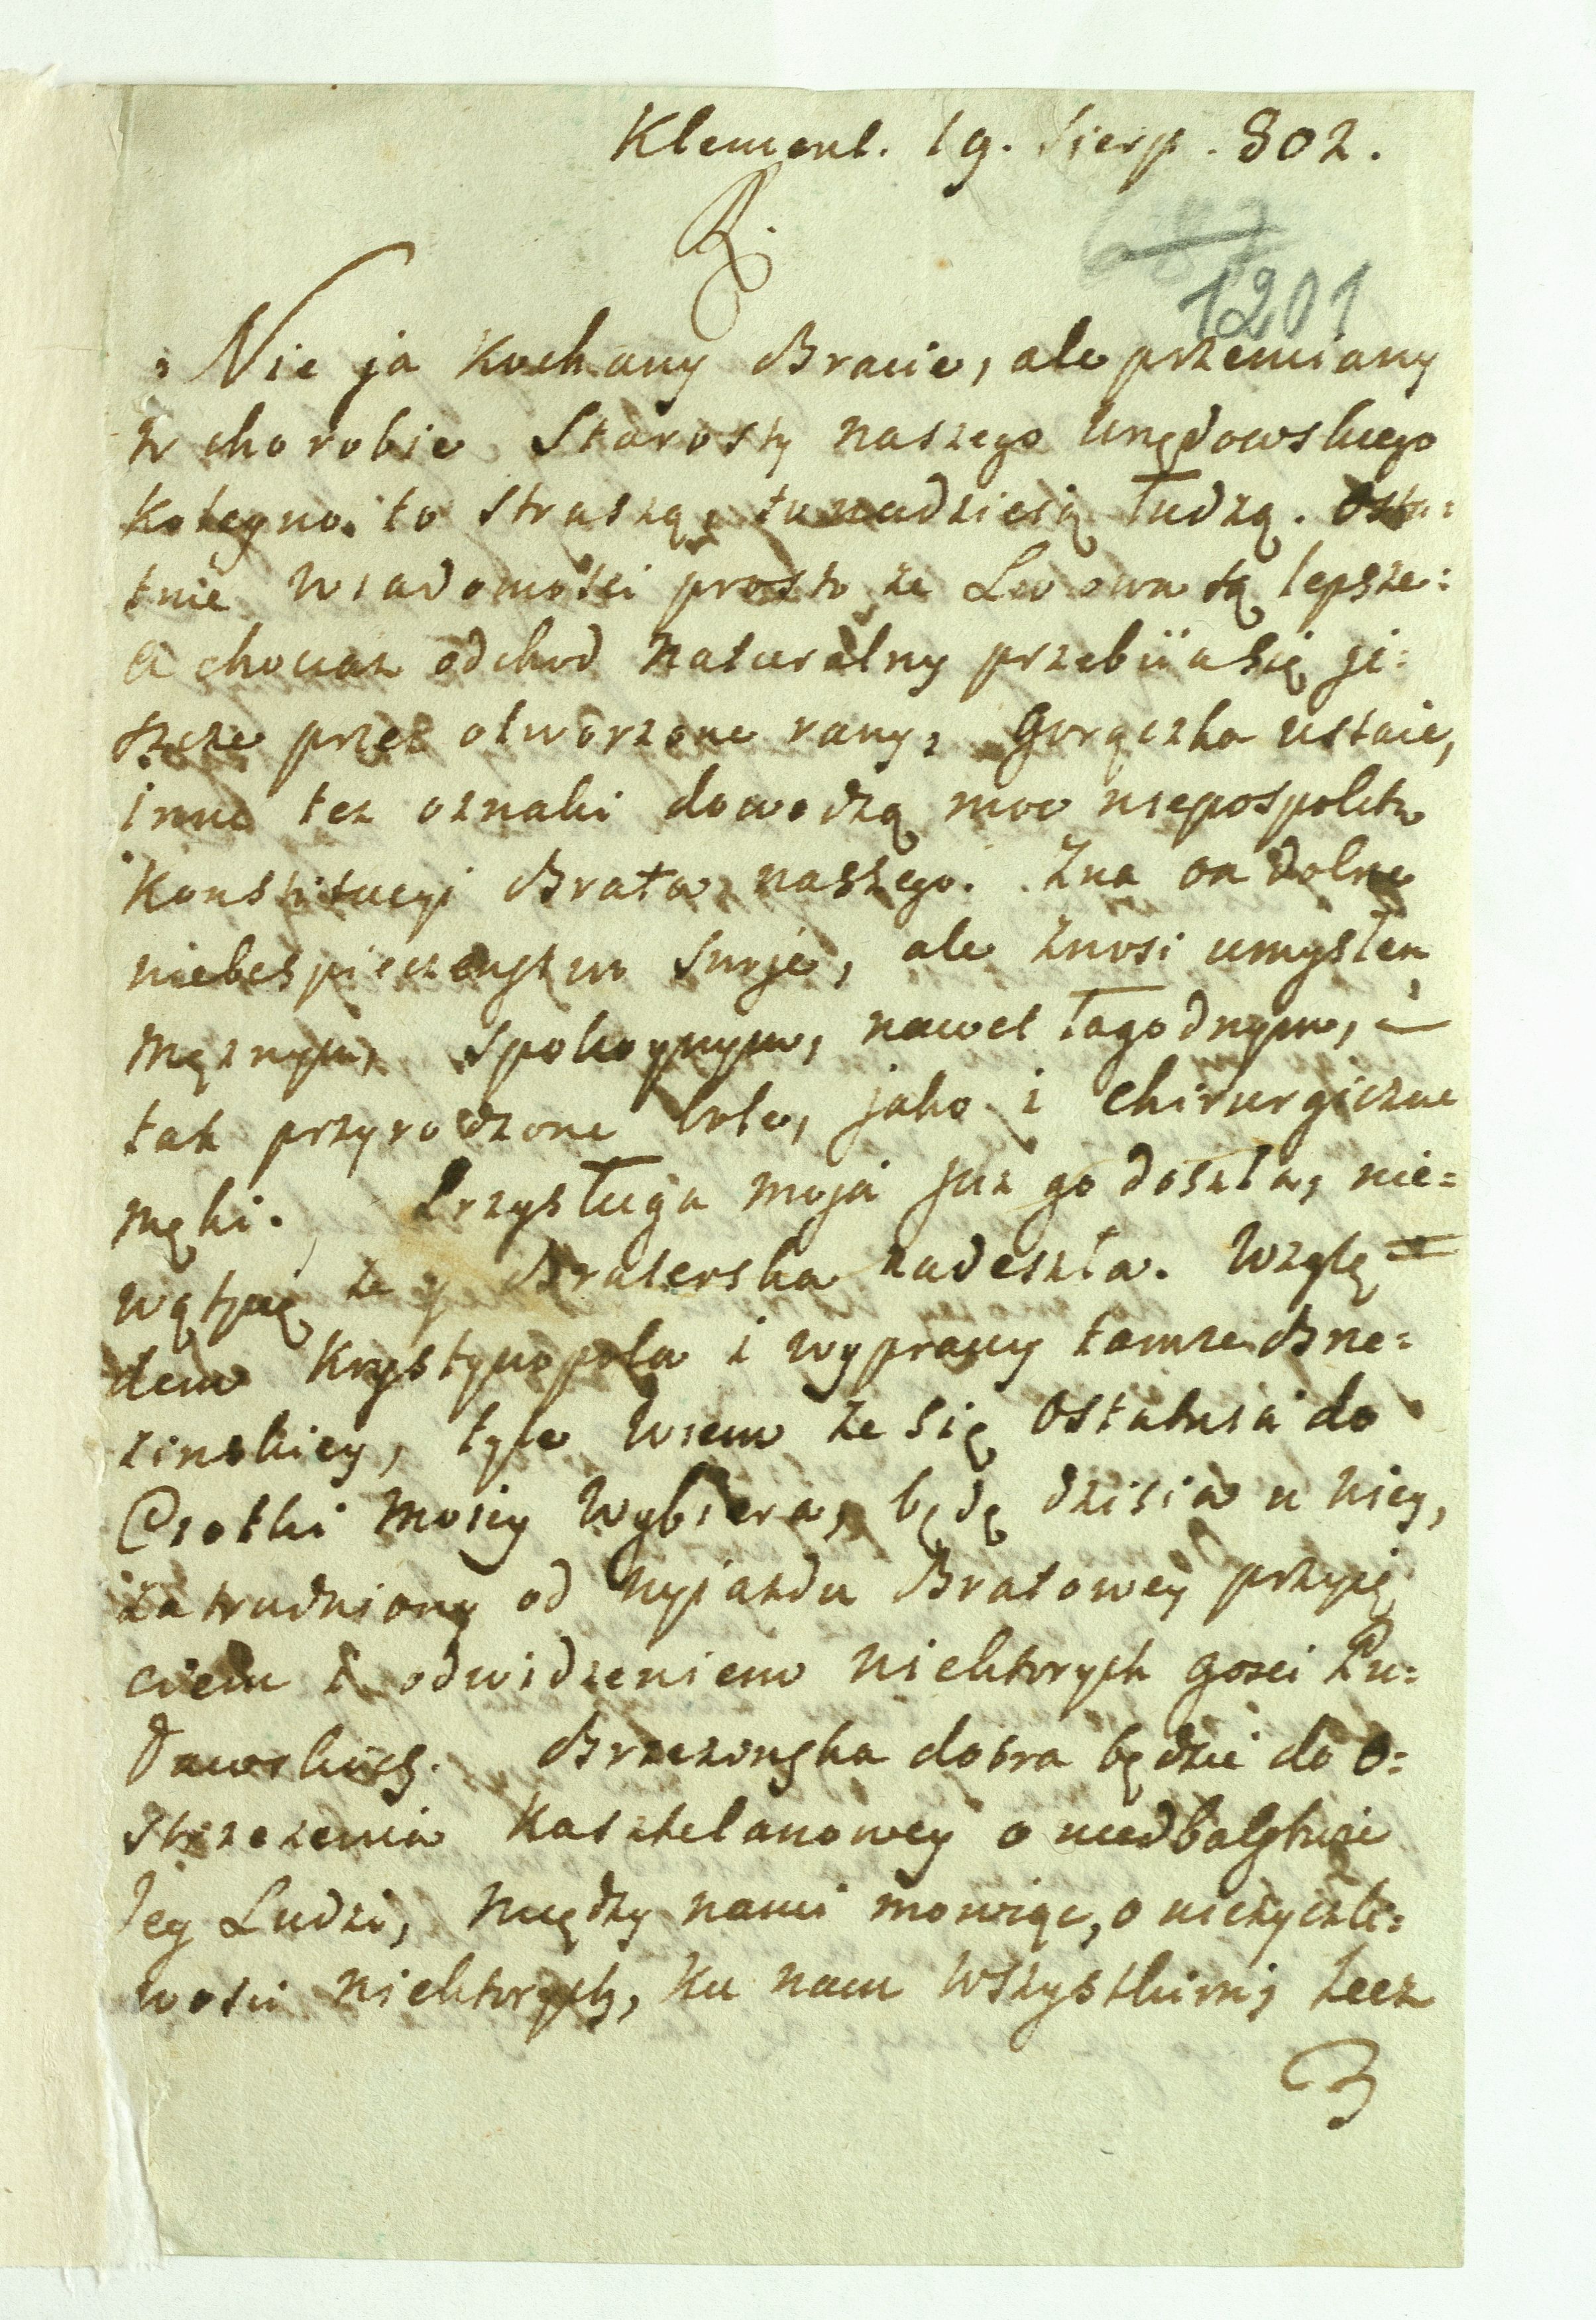 Klement. 19. Sierp. 802.
R.
687
1201
Nie ja kochany Bracie, ale przemiany
w chorobie Starosty naszego Urzędowskiego
to straszą, to nadzieią łudzą. Osta=
tnie wiadomości prosto ze Lwowa są lepsze:
a chociaz odchod naturalny przebiia się je:
szcze przez otworzone rany, gorączka ustaie,
inne tez oznaki dowodzą moc niepospolitą
Konstitucyi Brata naszego. Zna on dolne
niebespieczeństwo swoje, ale znosi umysłem
męznym, spokoynym, nawet łagodnym,
tak przyrodzone bole, jako i chirurgiczne
męki. Przysługa moja juz go doszła, nie=
wątpię ze y Braterska nadeszła. Wzglę=
dem Krystynopola i wyprawy tamże Brze=
zinskiey, tyle wiem ze się ostatnia do
Ciotki moiey wybiera, będę dzisia u niey,
zatrudniony od wyjazdu Bratowey przyię
ciem i odwidzeniem niektorych gosci Pu=
ławskich. Brzezinska dobra będzie do o=
strzezenia Kasztelanowey o niedbalstwie
Jey Ludzi, między nami mowiąc, o niezyczli=
wosci niektorych, ku nam wszystkim; lecz